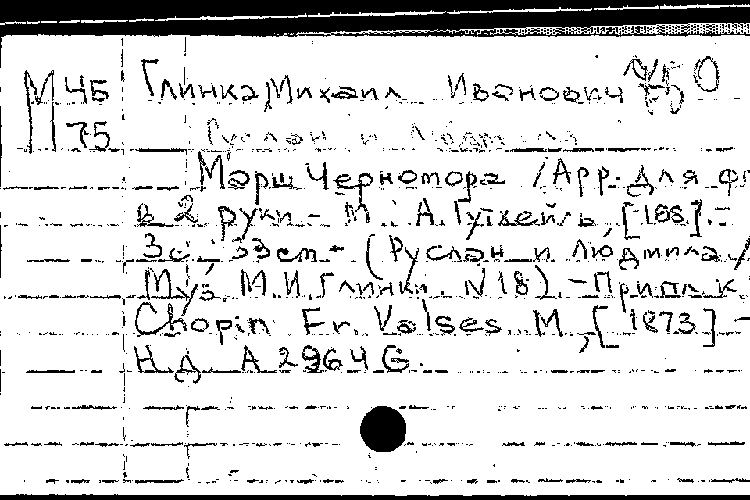 М 45 Глинка, Михаил Иванович
М 75 Руслан и Людмила
Марш Черномора / Арр. для фп
в 2 руки. - М.: А. Гутхейль, [188]. -
3с.; 33см - (Руслан и Людмила /
Муз. М.И. Глинки. N 18) - Припл. к
Chopin Fr. Valses. М., [1873] -
Н.д. А 2964 G.